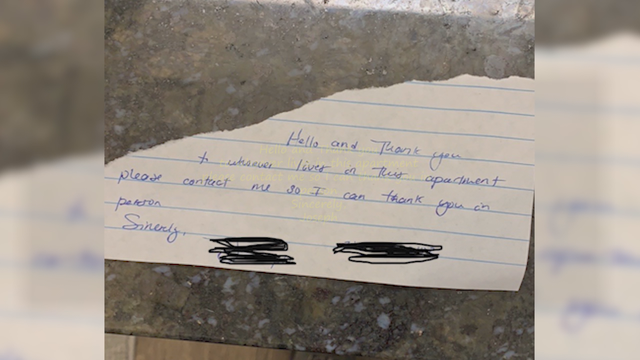 Hello and Thank you
to whoever lives in this apartment
please contact me so I can thank you in
person
Sincerely,